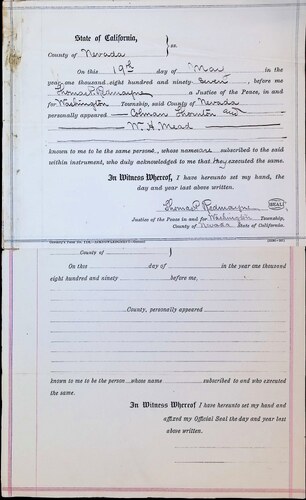 State of California,
County of Nevada } ss.
On this 19th day of Mar in the
year one thousand eight hundred and ninety seven, before me
Thomas P. Redmayne a Justice of the Peace, in and
for Washington Township, said County of Nevada
personally appeared Colman Thornton and
W. H. Mead
known to me to be the same persons, whose names are subscribed to the said
within instrument, who duly acknowledged to me that they executed the same.
In Witness Whereof, I have hereunto set my hand, the
day and year last above written.
Thomas P. Redmayne (SEAL)
Justice of the Peace in and for Washington Township,
County of Nevada State of California.
County of
On this day of in the year one thousand
eight hundred and ninety before me,
County, personally appeared
known to me to be the person whose name subscribed to and who executed
the same.
In Witness Whereof I have hereunto set my hand and
affixed my Official Seal the day and year last
above written.